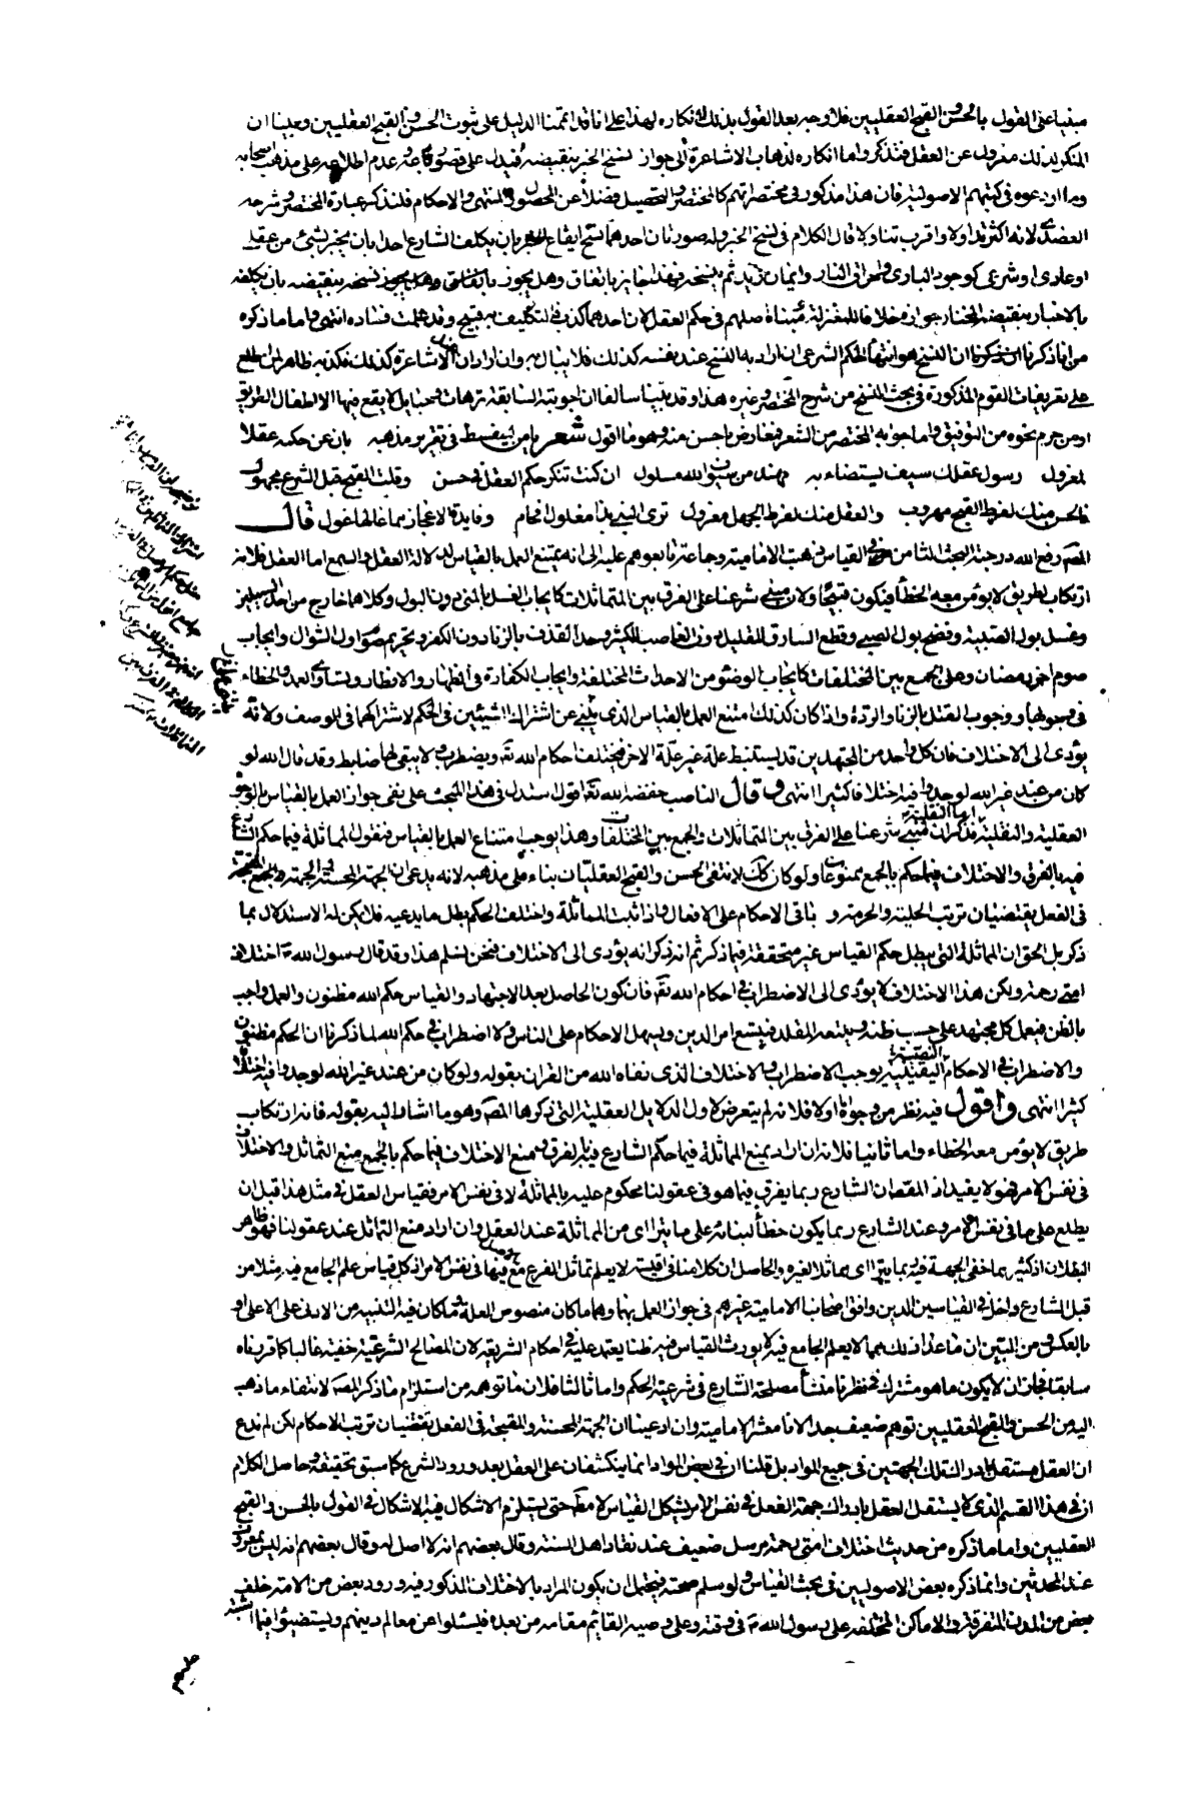 مبنيا على القول بالحسن والقبح العقليين فلا وجه بعد القول بذلك لانكاره لهذا على انا قد اتممنا الدليل على ثبوت الحسن والقبح العقليين وبينا ان
المنكر لذلك معزول عن العقل فتذكر واما انكاره لذهاب الاشاعرة الى جواز نسخ الخبر بنقيضه فيدل على قصور باعه وعدم اطلاعه على مذهب اصحابه
وما اودعوه في كتبهم الاصولية فان هذا مذكور في مختصراتهم كالمختصر والتحصيل فضلا عن المحصول والمنتهى والاحكام فلنذكر عبارة المختصر وشرحه
العضدي لانه اكثر تداولا واقرب تناولا قال الكلام في نسخ الخبر وله صورتان احدهما نسخ ايقاع الخبر بان يكلف الشارع احدا بان يخبر بشيء من عقلي
او عادي او شرعي كوجود الباري واحراق النار وايمان زيد ثم ينسخه فهذا جايز باتفاق وهل يجوز نسخه بنقيضه بان يكلفه
بالاخبار بنقيضه المختار جوازه خلافا للمعتزلة ومبناه اصلهم في حكم العقل لان احدهما كذب فالتكليف به قبيح وقد علمت فساده انتهى واما ما ذكره
من انا ذكرنا ان النسخ هو انتهاء الحكم الشرعي ان اراد به النسخ عند نفسه كذلك فلا يبال به وان اراد ان عند الاشاعرة كذلك فكذبه ظاهر لمن اطلع
على تعريفات القوم المذكورة في بحث النسخ من شرح المختصر وغيره هذا وقد بينا سالفا ان اجوبته السابقة ترهات كمخايل لا يقع فيها الا طفال الطريق
او من حرم نحوه من التوفيق واما جوابه المختصر من الشعر فمعارض باحسن منه وهو ما اقول شعر يا من يفسط في تقرير مذهبه بان عن حكمه عقلا
لمعزول رسول عقلك سيف يستضاء به مهند من سيوف الله مسلول ان كنت تنكر حكم العقل في حسن وقلت القبح قبل الشرع مجهول
فالحسن منك لفرط القبح مهروب والعقل منك لفرط الجهل معزول ترى النبي بذا مغلول افحام وفايدة الاعجاز مما غالها غول قال
المصنف رفع الله درجته البحث الثامن في القياس ذهبت الامامية وجماعة تابعوهم عليه الى انه يمتنع العمل بالقياس لدلالة العقل والسمع اما العقل فلانه
ارتكاب لطريق لا يؤمن معه الخطأ فيكون قبيحا ولان مبنى شرعنا على الفرق بين المتماثلات كايجاب الغسل بالمني دون البول وكلاهما خارج من احد السبيلين
وغسل بول الصبية ونضح بول الصبي وقطع السارق للقليل دون الغاصب للكثير وحد القذف بالزنا دون الكفر وتحريم صوم اول شوال وايجاب
صوم اخر رمضان وعلى الجمع بين المختلفات كايجاب الوضوء من الاحداث المختلفة وايجاب الكفارة في الظهار والافطار وتساوي العمد والخطاء
في وجوبها ووجوب القتل بالزنا والردة واذا كان كذلك امتنع العمل بالقياس الذي ينبئ عن اشتراك الشيئين في الحكم لاشتراكهما في الوصف ولانه
يؤدي الى الاختلاف فان كل واحد من المجتهدين قد يستنبط علة غير علة الاخر فيختلف احكام الله تعالى ويضطرب ولا يبقى لها ضابط وقد قال الله لو
كان من عند غير الله لوجدوا فيه اختلافا كثيرا انتهى وقال الناصب خفضه الله تعالى اقول استدل في هذا المبحث على نفي جواز العمل بالقياس بالوجوه
العقلية والنقلية اما النقلية فذكر ان مبنى شرعنا على الفرق بين المتماثلات والجمع بين المختلفات وهذا يوجب امتناع العمل بالقياس فنقول المماثلة فيما حكم الشارع
فيه بالفرق والاختلاف فيما حكم بالجمع ممنوعان ولو كان كذلك لانتفى الحسن والقبح العقليان بناء على مذهبه لانه يدعي ان الجهة المحسنة والجهة المقبحة
في الفعل يقتضيان ترتب الحلية والحرمة وباقي الاحكام على الافعال فاذا ثبت المماثلة واختلف الحكم بطل ما يدعيه فلا يمكن له الاستدلال بما
ذكر بل الحق ان المماثلة التي يبطل حكم القياس غير متحققة فيما ذكر ثم انه ذكر انه يؤدي الى الاختلاف فنحن نسلم هذا وقد قال رسول الله ص اختلاف
امتي رحمة ولكن هذا الاختلاف لا يؤدي الى الاضطراب في احكام الله تعالى فان كون الحاصل بعد الاجتهاد والقياس حكم الله مظنون والعمل واجب
بالظن فيعمل كل مجتهد على حسب ظنه ويتبعه المقلد فيتسع امر الدين ويسهل الاحكام على الناس ولا اضطراب في حكم الله لما ذكرنا ان الحكم مظنون
والاضطراب في الاحكام اليقينية يوجب الاضطراب والاختلاف الذي نفاه الله من القران بقوله ولو كان من عند غير الله لوجدوا فيه اختلافا
كثيرا انتهى واقول فيه نظر من وجوه اما اولا فلانه لم يتعرض لاول الدلايل العقلية التي ذكرها المصنف وهو ما اشار اليه بقوله فانه ارتكاب
طريق لا يؤمن معه الخطاء واما ثانيا فلانه ان اراد بمنع المماثلة فيما حكم الشارع فيه بالفرق ومنع الاختلاف فيما حكم بالجمع منع التماثل والاختلاف
في نفس الامر فهو لا يفيد اذ المقصد ان الشارع ربما يفرق فيما هو في عقولنا محكوم عليه بالمماثلة لا في نفس الامر فقياس العقل في مثل هذا قبل ان
يطلع على ما في نفس الامر وعند الشارع ربما يكون خطأ لبنائه على ما يترااى من المماثلة عند العقل وان اراد منع التماثل عند عقولنا فهو ظاهر
البطلان اذ كثيرا ما خفي الجهة فيه ربما يترااى مماثلا لغيره والحاصل ان كلامنا في اقيسة لا يعلم تماثل الفرع مع اصله فيها في نفس الامر اذ كل قياس علم الجامع فيه مثلا من
قبل الشارع داخل في القياسين الذين وافق اصحابنا الامامية غيرهم في جواز العمل بهما وهما ما كان منصوص العلة وما كان فيه التنبيه من الادنى على الاعلى او
بالعكس ومن البين ان ما عدا ذلك مما لا يعلم الجامع فيه لا يورث القياس فيه ظنا يعتمد عليه في احكام الشريعة لان المصالح الشرعية خفية غالبا كما قررناه
سابقا فجاز ان لا يكون ما هو مشترك في نظرنا منشأ مصلحة الشارع في شرعية الحكم واما ثالثا فلان ما توهمه من استلزام ما ذكر المصنف لانتفاء ما ذهب
اليه من الحسن والقبح العقليين توهم ضعيف جدا لانا معشر الامامية وان ادعينا ان الجهة المحسنة والمقبحة في الفعل تقتضيان ترتب الاحكام لكن لم ندع
ان العقل مستقل بادراك تلك الجهتين في جميع المواد بل قلنا ان في بعض المواد انما ينكشفان على العقل بعد ورود الشرع كما سبق تحقيقه وحاصل الكلام
ان في هذا القسم الذي لا يستقل العقل بادراك جهة الفعل في نفس الامر يشكل القياس لا مطلقا حتى يستلزم الاشكال فيه الاشكال في القول بالحسن والقبح
العقليين واما ما ذكره من حديث اختلاف امتي رحمة مرسل ضعيف عند نقاد اهل السنة وقال بعضهم انه لا اصل له وقال بعضهم انه ليس بمعروف
عند المحدثين وانما ذكره بعض الاصوليين في بحث القياس ولو سلم صحته فيحتمل ان يكون المراد بالاختلاف المذكور فيه ورود بعض من الامة خلف
بعض من المدن المتفرقة والاماكن المختلفة على رسول الله ص في وقته وعلى وصيه القايم مقامه من بعده فيسئلوا عن معالم دينهم ويستضيؤا فيما اشتبه